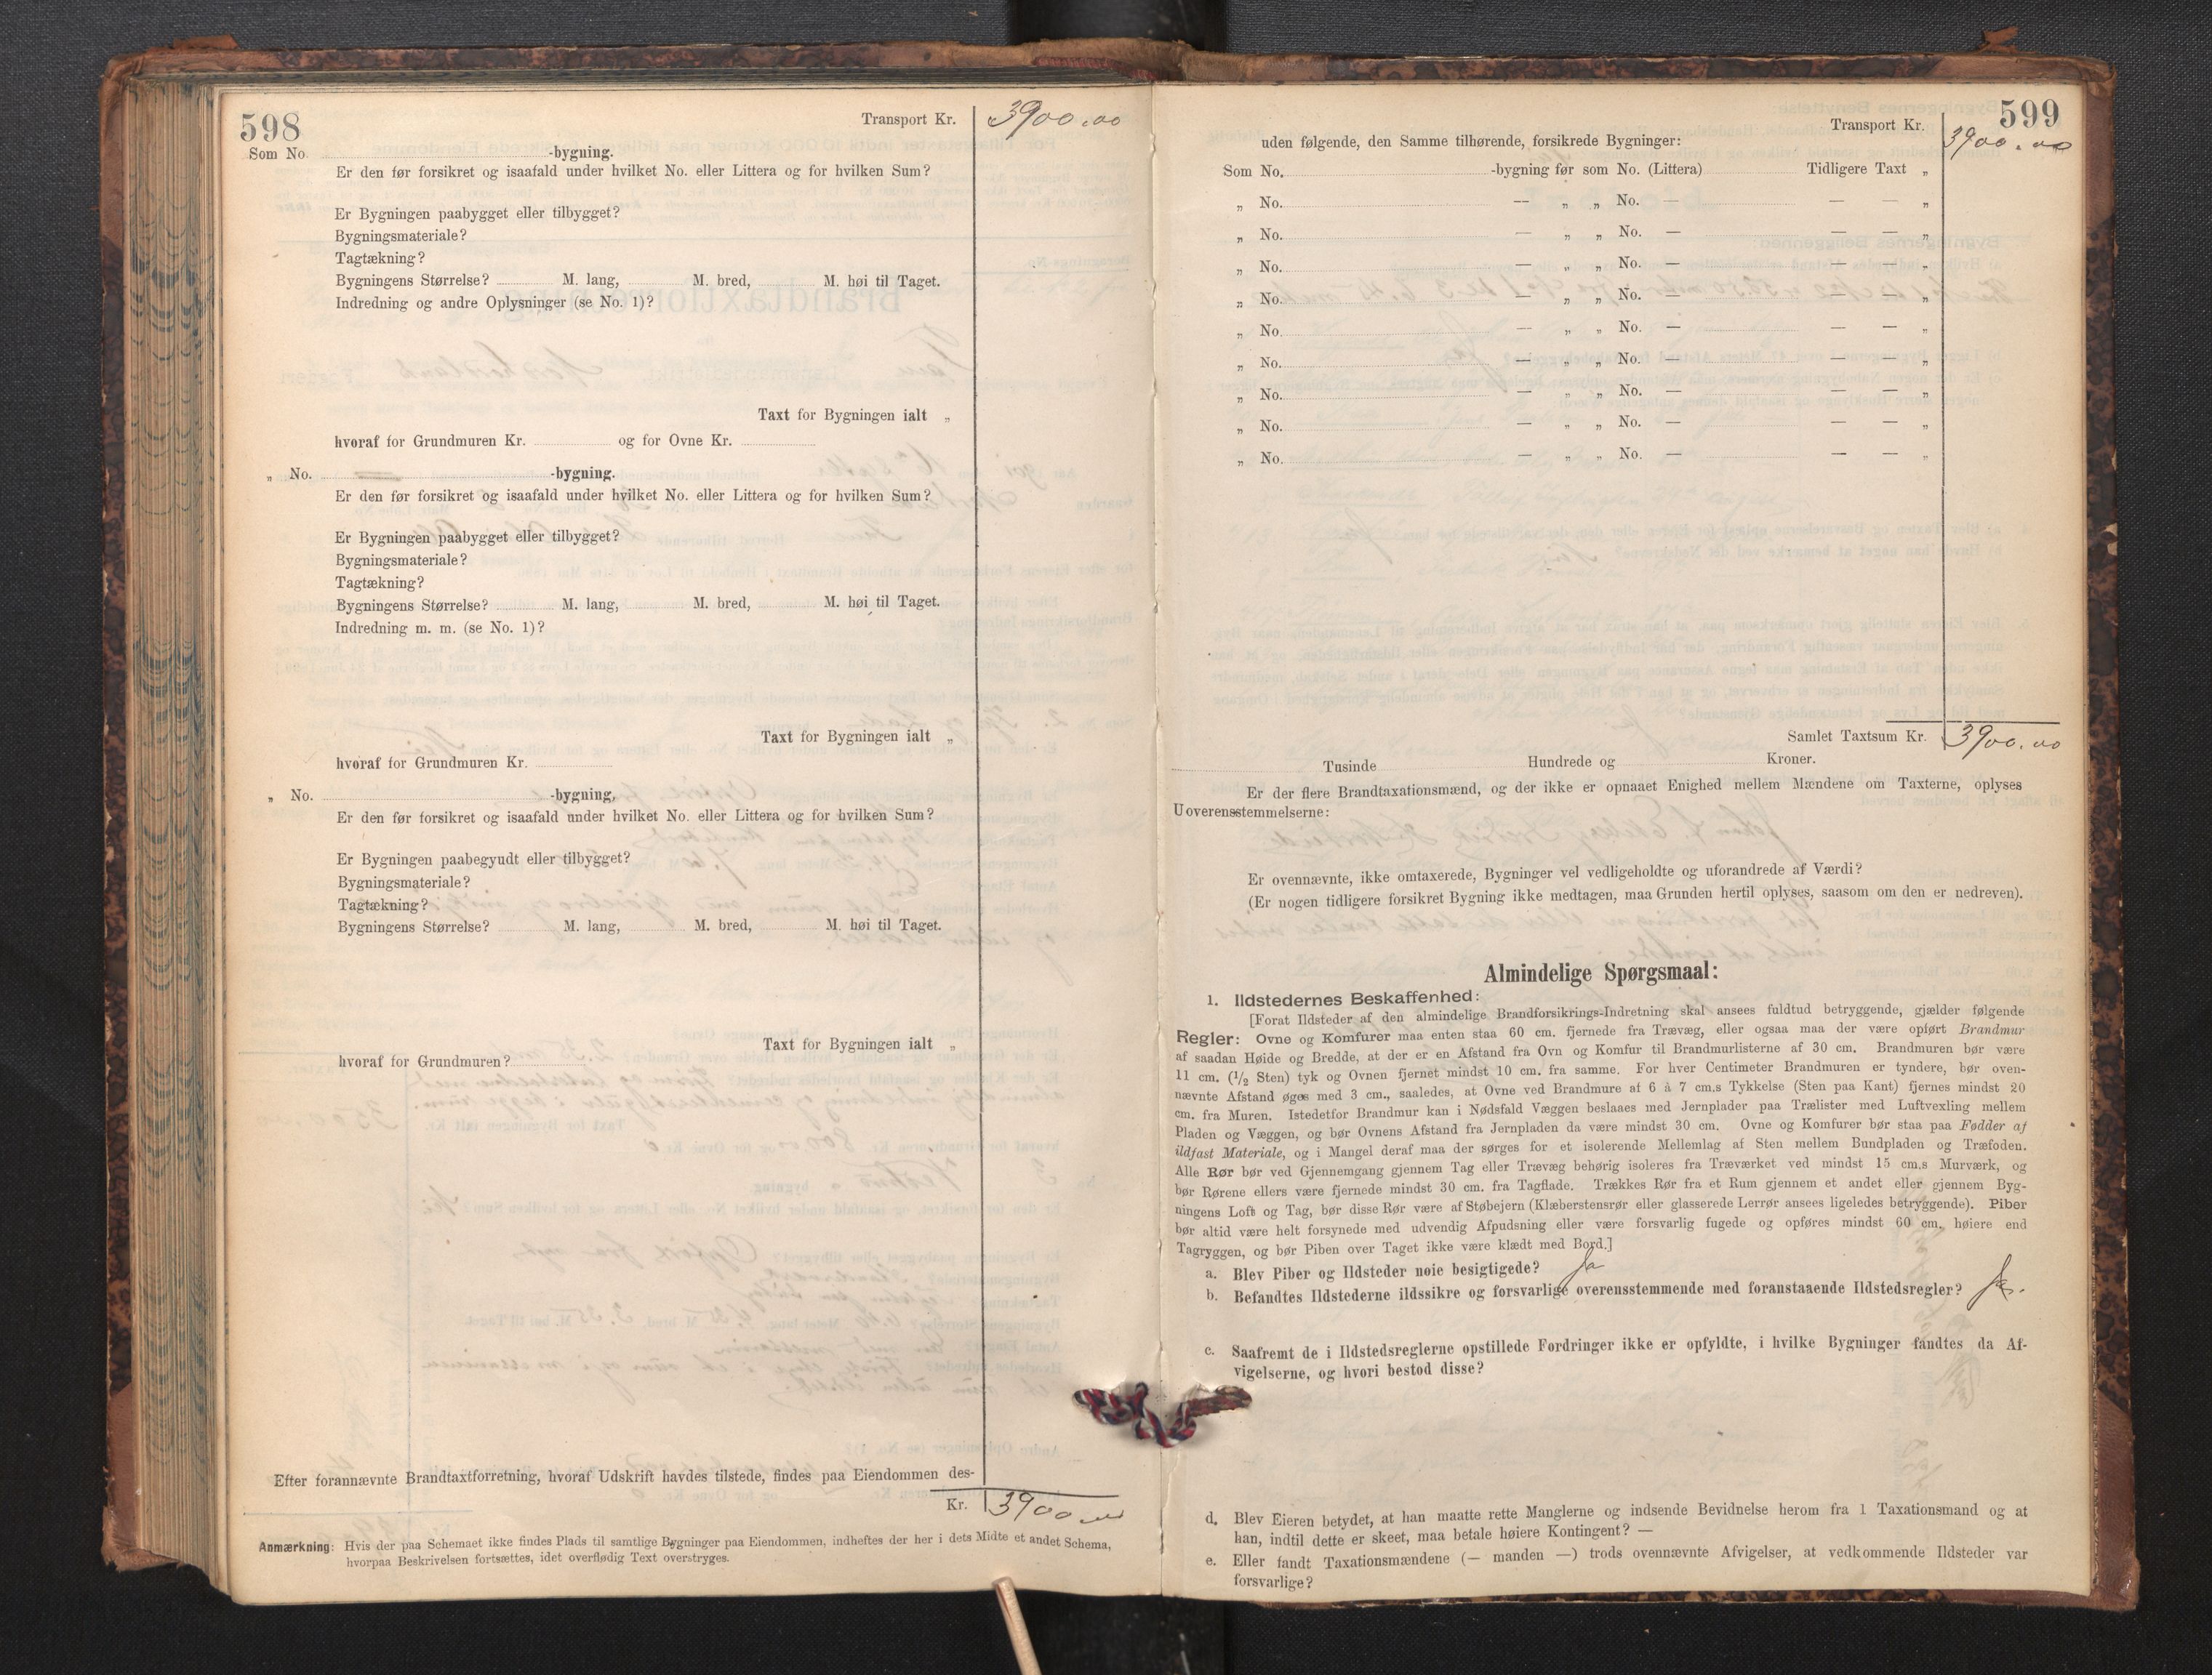 598
Transport Kr. 3900.00
Som No. -bygning.
Er den før forsikret og isaafald under hvilket No. eller Littera og for hvilken Sum?
Er Bygningen paabygget eller tilbygget?
Bygningsmateriale?
Tagtækning?
Bygningens Størrelse? M. lang, M. bred, M. høi til Taget.
Indredning og andre Oplysninger (se No. 1)?
Taxt for Bygningen ialt „
hvoraf for Grundmuren Kr. og for Ovne Kr.
„ No. -bygning.
Er den før forsikret og isaafald under hvilket No. eller Littera og for hvilken Sum?
Er Bygningen paabygget eller tilbygget?
Bygningsmateriale?
Tagtækning?
Bygningens Størrelse? M. lang, M. bred, M. høi til Taget.
Indredning m. m. (se No. 1)?
Taxt for Bygningen ialt „
hvoraf for Grundmuren Kr.
„ No. -bygning,
Er den før forsikret og isaafald under hvilket No. eller Littera og for hvilken Sum?
Er Bygningen paabegyudt eller tilbygget?
Bygningsmateriale?
Tagtækning?
Bygningens Størrelse? M. lang, M. bred, M. høi til Taget.
Taxt for Bygningen ialt „
hvoraf for Grundmuren?
Efter forannævnte Brandtaxtforretning, hvoraf Udskrift havdes tilstede, findes paa Eiendommen des-
Kr. 3900.00
Anmærkning: Hvis der paa Schemaet ikke findes Plads til samtlige Bygninger paa Eiendommen, indheftes der her i dets Midte et andet Schema,
hvorpaa Beskrivelsen fortsættes, idet overflødig Text overstryges.
599
Transport Kr. 3900.00
uden følgende, den Samme tilhørende, forsikrede Bygninger:
Som No. -bygning før som No. (Littera) Tidligere Taxt „
„ No. — „ „ No. — — — „
„ No. — „ „ No. — — — „
„ No. — „ „ No. — — — „
„ No. — „ „ No. — — — „
„ No. — „ „ No. — — — „
„ No. — „ „ No. — — — „
„ No. — „ „ No. — — — „
„ No. — „ „ No. — — — „
„ No. — „ „ No. — — — „
Samlet Taxtsum Kr. 3900.00
Tusinde Hundrede og Kroner.
Er der flere Brandtaxationsmænd, og der ikke er opnaaet Enighed mellem Mændene om Taxterne, oplyses
Uoverensstemmelserne:
Er ovennævnte, ikke omtaxerede, Bygninger vel vedligeholdte og uforandrede af Værdi?
(Er nogen tidligere forsikret Bygning ikke medtagen, maa Grunden hertil oplyses, saasom om den er nedreven).
Almindelige Spørgsmaal:
1. Ildstedernes Beskaffenhed:
[Forat Ildsteder af den almindelige Brandforsikrings-Indretning skal ansees fuldtud betryggende, gjælder følgende
Regler: Ovne og Komfurer maa enten staa 60 cm. fjernede fra Trævæg, eller ogsaa maa der være opført Brandmur
af saadan Høide og Bredde, at der er en Afstand fra Ovn og Komfur til Brandmurlisterne af 30 cm. Brandmuren bør være
11 cm. (1/2 Sten) tyk og Ovnen fjernet mindst 10 cm. fra samme. For hver Centimeter Brandmuren er tyndere, bør oven-
nævnte Afstand øges med 3 cm., saaledes, at Ovne ved Brandmure af 6 à 7 cm.s Tykkelse (Sten paa Kant) fjernes mindst 20
cm. fra Muren. Istedetfor Brandmur kan i Nødsfald Væggen beslaaes med Jernplader paa Trælister med Luftvexling mellem
Pladen og Væggen, og bør Ovnens Afstand fra Jernpladen da være mindst 30 cm. Ovne og Komfurer bør staa paa Fødder af
ildfast Materiale, og i Mangel deraf maa der sørges for et isolerende Mellemlag af Sten mellem Bundpladen og Træfoden.
Alle Rør bør ved Gjennemgang gjennem Tag eller Trævæg behørig isoleres fra Træværket ved mindst 15 cm.s Murværk, og
bør Rørene ellers være fjernede mindst 30 cm. fra Tagflade. Trækkes Rør fra et Rum gjennem et andet eller gjennem Byg-
ningens Loft og Tag, bør disse Rør være af Støbejern (Klæberstensrør eller glasserede Lerrør ansees ligeledes betryggende). Piber
bør altid være helt forsynede med udvendig Afpudsning eller være forsvarlig fugede og opføres mindst 60 cm. høiere end
Tagryggen, og bør Piben over Taget ikke være klædt med Bord.]
a. Blev Piber og Ildsteder nøie besigtigede? Ja
b. Befandtes Ildstederne ildssikre og forsvarlige overensstemmende med foranstaaende Ildstedsregler? Ja.
c. Saafremt de i Ildstedsreglerne opstillede Fordringer ikke er opfyldte, i hvilke Bygninger fandtes da Af-
vigelserne, og hvori bestod disse?
d. Blev Eieren betydet, at han maatte rette Manglerne og indsende Bevidnelse herom fra 1 Taxationsmand og at
han, indtil dette er skeet, maa betale høiere Kontingent? —
e. Eller fandt Taxationsmændene (— manden —) trods ovennævnte Afvigelser, at vedkommende Ildsteder var
forsvarlige?